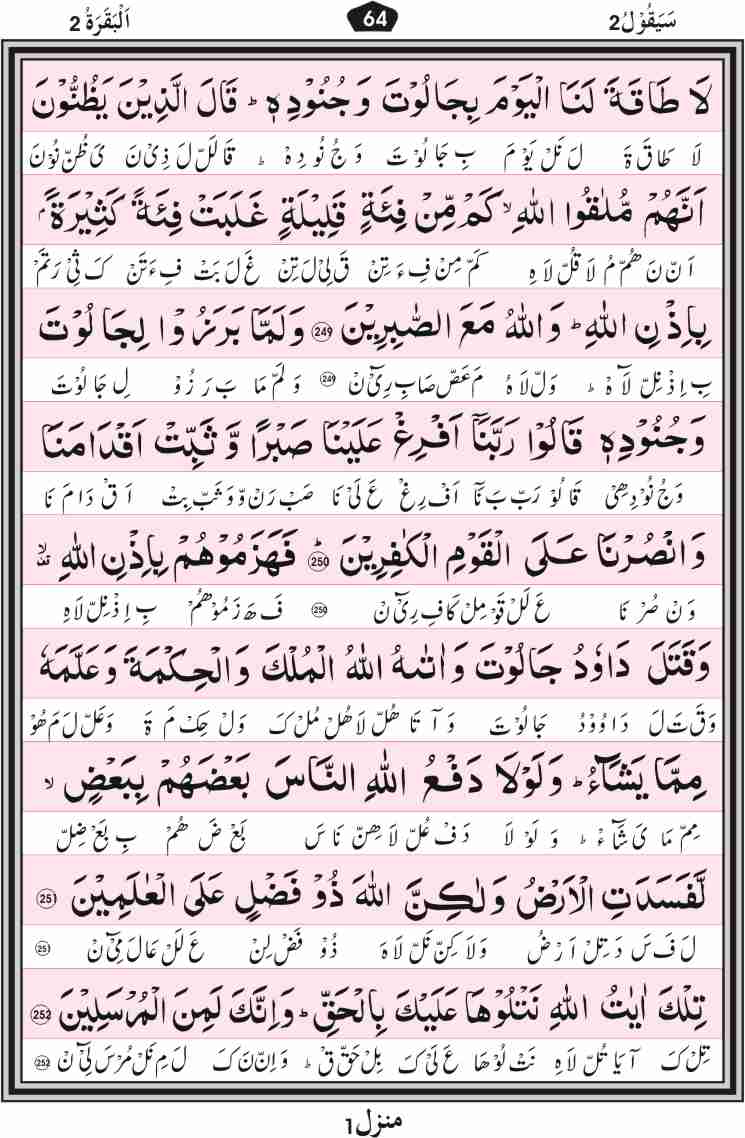 سَيَقُوْلُ2 64 اَلْبَقَرَةُ 2
لَا طَاقَةَ لَنَا الْيَوْمَ بِجَالُوْتَ وَجُنُوْدِهٖ ؕ قَالَ الَّذِيْنَ يَظُنُّوْنَ
لَا طَاقَ ةَ لَ نَلْ يَوْ مَ بِ جَا لُوْ تَ وَ جُ نُوْ دِهْ ؕ قَا لَلّ لَ ذِىْ نَ ىَ ظُنّ نُوْنَ
اَنَّهُمْ مُّلٰقُوا اللّٰهِ ۙ كَمْ مِّنْ فِئَةٍ قَلِيْلَةٍ غَلَبَتْ فِئَةً كَثِيْرَةًۢ
اَ نّ نَ هُمْ مُ لَا قُلّ لَا هِ كَمّ مِنْ فِ ءَ تِنْ قَ لِىْ لَ تِنْ غَ لَ بَتْ فِ ءَ تَنْ كَ ثِىْ رَ تَمْ
بِاِذْنِ اللّٰهِ ؕ وَاللّٰهُ مَعَ الصّٰبِرِيْنَ 249 وَلَمَّا بَرَزُوْا لِجَالُوْتَ
بِ اِذْ نِلّ لَآ هْ ؕ وَلّ لَا هُ مَ عَصّ صَابِ رِىْٓ نْ 249 وَ لَمّ مَا بَ رَ زُوْ لِ جَا لُوْتَ
وَجُنُوْدِهٖ قَالُوْا رَبَّنَآ اَفْرِغْ عَلَيْنَا صَبْرًا وَّثَبِّتْ اَقْدَامَنَا
وَ جُ نُوْ دِهِىْ قَا لُوْ رَبّ بَ نَآ اَفْ رِغْ عَ لَىْ نَا صَبْ رَنْ وّ وَ ثَبّ بِتْ اَ قْ دَا مَ نَا
وَانْصُرْنَا عَلَى الْقَوْمِ الْكٰفِرِيْنَ ؕ 250 فَهَزَمُوْهُمْ بِاِذْنِ اللّٰهِ ۙ
وَ نْ صُرْ نَا عَ لَلْ قَوْ مِلْ كَا فِ رِىْٓ نْ 250 فَ هَ زَ مُوْ هُمْ بِ اِذْ نِلّ لَا هِ
وَقَتَلَ دَاوٗدُ جَالُوْتَ وَاٰتٰىهُ اللّٰهُ الْمُلْكَ وَالْحِكْمَةَ وَعَلَّمَهٗ
وَ قَ تَ لَ دَا وُوْ دُ جَا لُوْ تَ وَ آ تَا هُلّ لَا هُلْ مُلْ كَ وَلْ حِكْ مَ ةَ وَ عَلّ لَ مَ هُوْ
مِمَّا يَشَآءُ ؕ وَلَوْلَا دَفْعُ اللّٰهِ النَّاسَ بَعْضَهُمْ بِبَعْضٍ ۙ
مِمّ مَا ىَ شَآ ءْ ؕ وَ لَوْ لَا دَ فْ عُلّ لَا هِنّ نَا سَ بَعْ ضَ هُمْ بِ بَعْ ضِلّ
لَّفَسَدَتِ الْاَرْضُ وَلٰكِنَّ اللّٰهَ ذُوْ فَضْلٍ عَلَى الْعٰلَمِيْنَ 251
لَ فَ سَ دَ تِلْ اَ رْ ضُ وَلَا كِنّ نَلّ لَا هَ ذُوْ فَضْ لِنْ عَ لَلْ عَا لَ مِىْٓ نْ 251
تِلْكَ اٰيٰتُ اللّٰهِ نَتْلُوْهَا عَلَيْكَ بِالْحَقِّ ؕ وَاِنَّكَ لَمِنَ الْمُرْسَلِيْنَ 252
تِلْ كَ آ يَا تُلّ لَا هِ نَتْ لُوْ هَا عَ لَىْ كَ بِلْ حَقّ قْ ؕ وَ اِنّ نَ كَ لَ مِ نَلْ مُرْ سَ لِىْٓ نْ 252
منزل 1